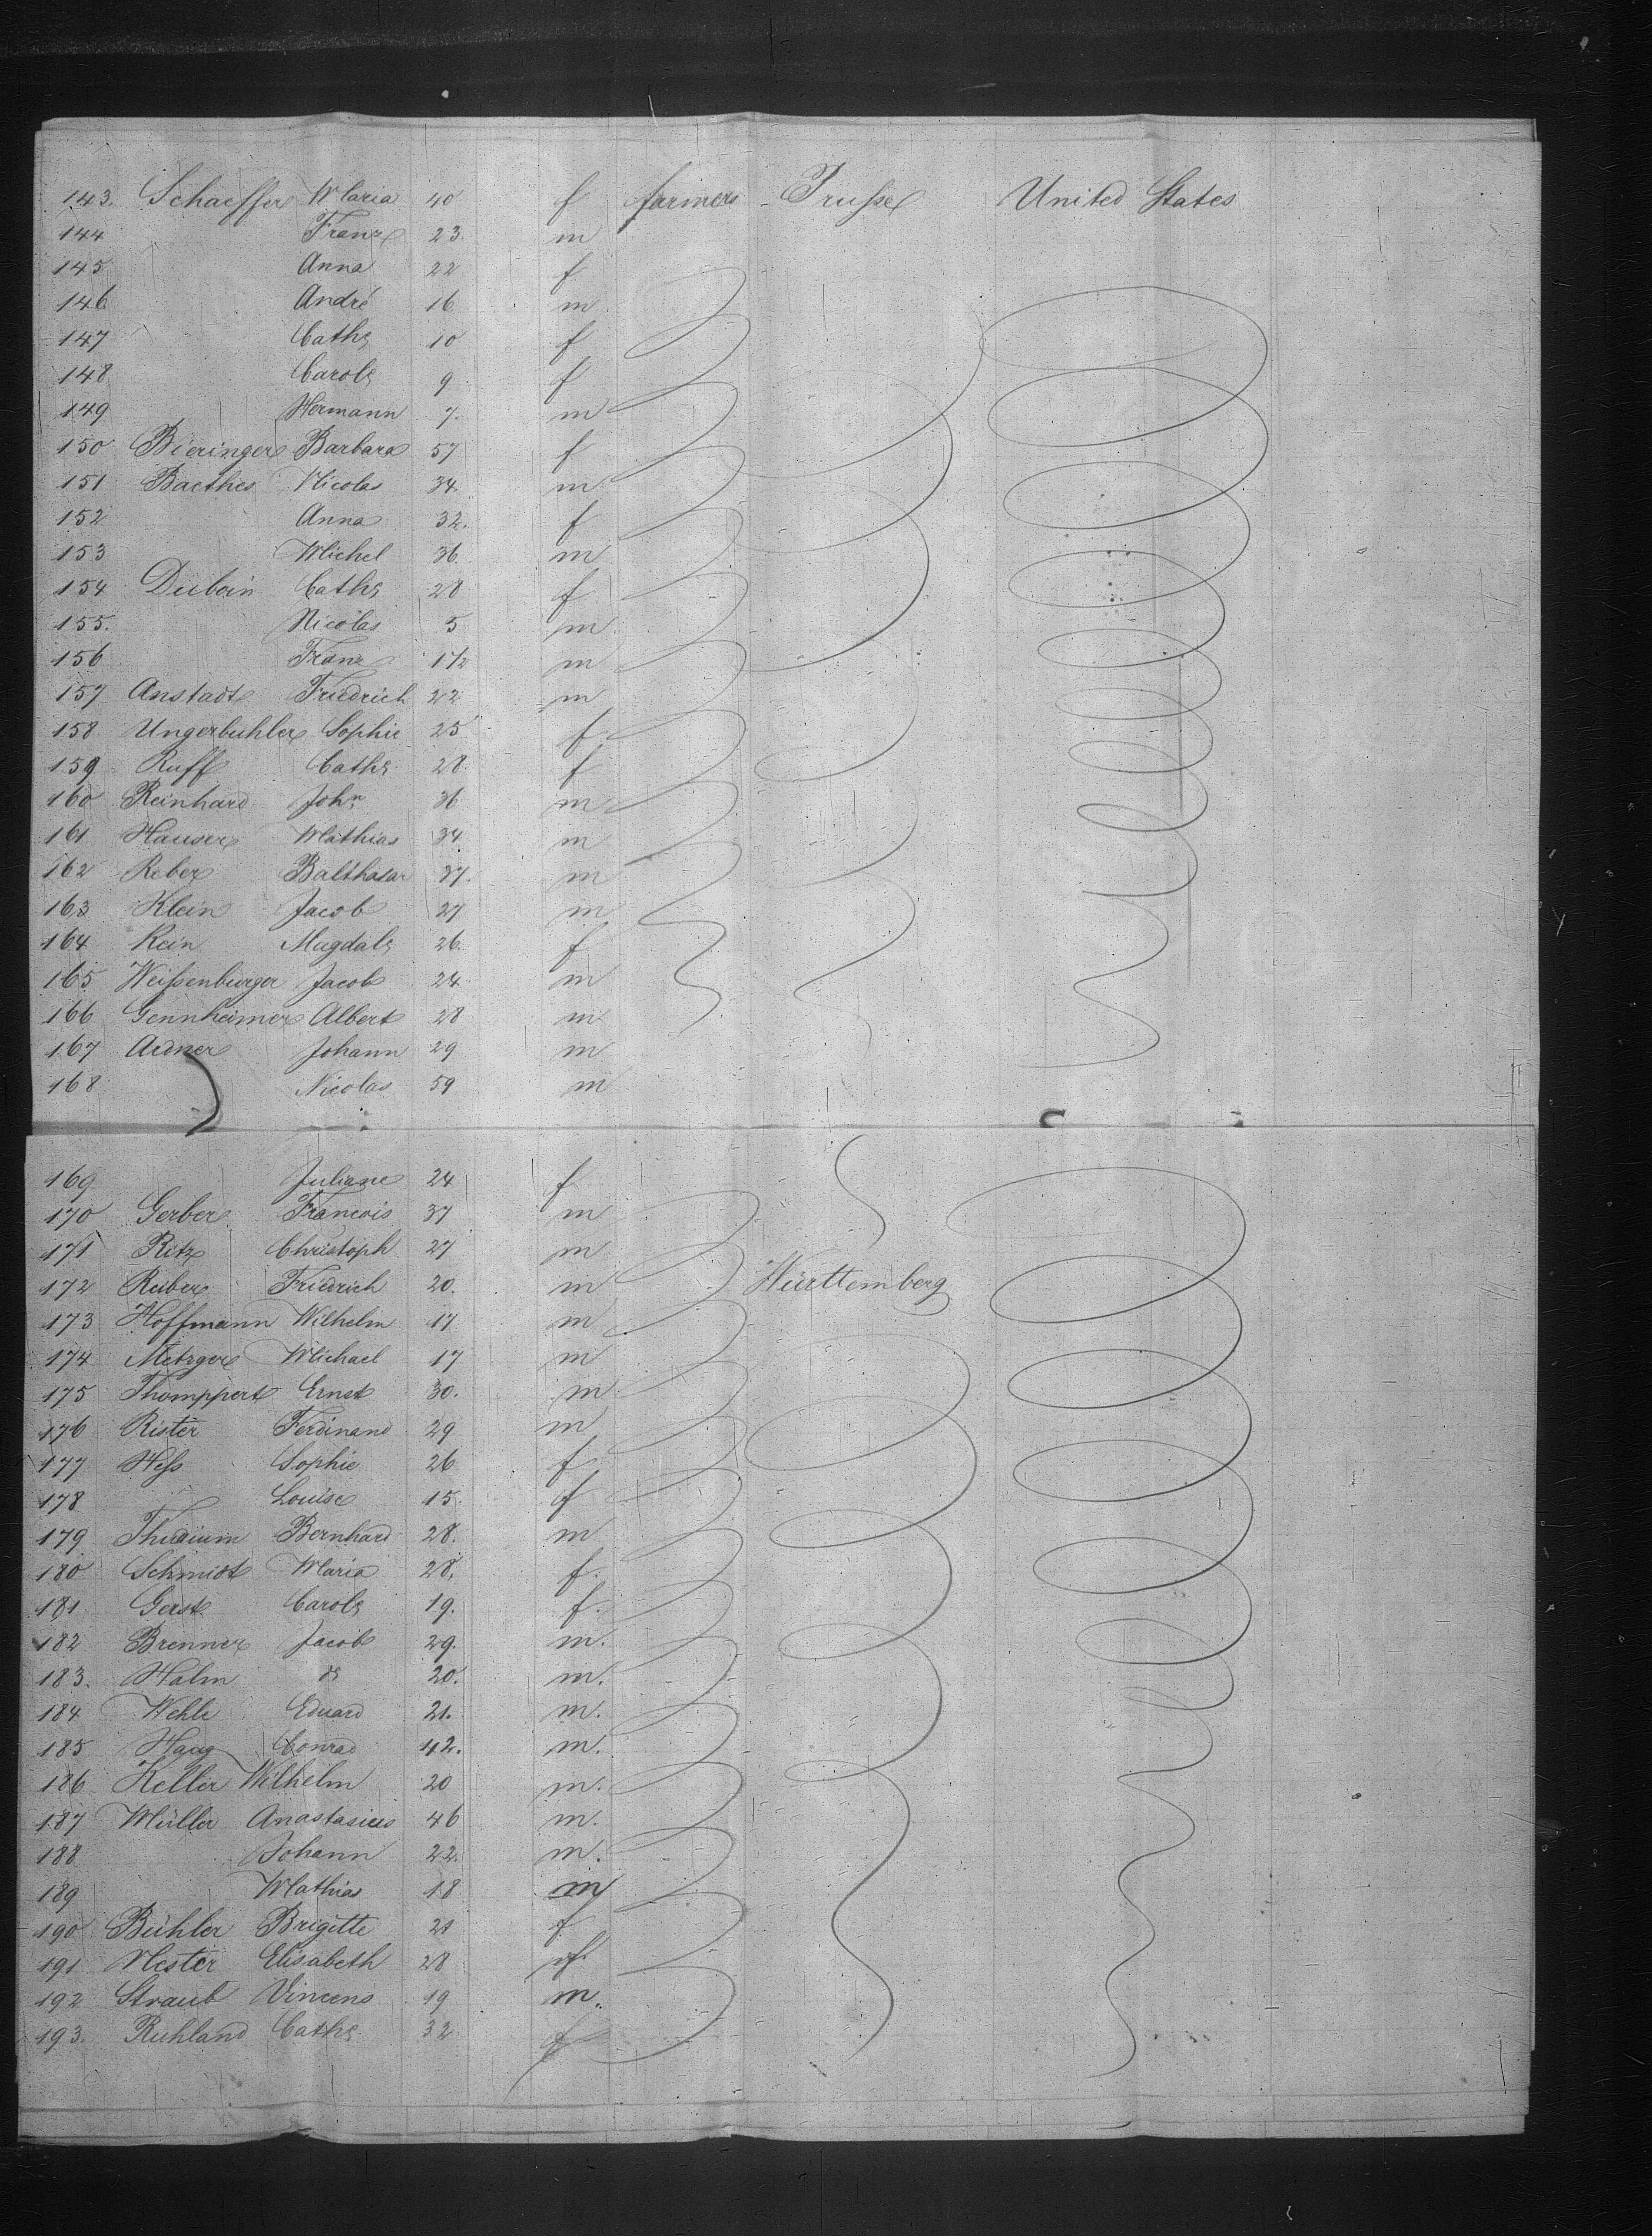 143. Schaeffer Maria 40 f farmers Prusse United States
144 Franz 23. m
145 Anna 22 f
146 André 16 m
147 Cathe 10 f
148 Carole 9 f
149 Hermann 7. m
150 Bieringer Barbara 57 f
151 Baethes Nicolas 34. m
152 Anna 32. f
153 Michel 36 m
154 Duboin Cathe 28 f
155. Nicolas 5 m
156 Franz 1 1/2 m
157 Anstadt Friedrich 22 m
158 Ungerbuhler Sophie 25 f
159 Ruff Cathe 28. f
160 Reinhard John 36 m
161 Hauser Mathias 34. m
162 Reber Balthasar 37. m
163 Klein Jacob 27 m
164 Rein Magdale 26. f
165 Weißenburger Jacob 24 m
166 Gennheimer Albert 28 m
167 Aidner Johann 29 m
168 Nicolas 59 m
169 Juliane 24 f
170 Gerber Francois 37 m
171 Ritz Christoph 27 m
172 Reiber Friedrich 20. m Württemberg
173 Hoffmann Wilhelm 17 m
174 Metzger Michael 17 m
175 Thomppert Ernst 30. m
176 Rister Ferdinand 29 m
177 Heß Sophie 26 f
178 Louise 15. f
179 Thudium Bernhard 28. m
180 Schmidt Maria 28. f.
181 Gerst Carole 19. f.
182 Brenner Jacob 29. m.
183. Halm do 20. m.
184 Wehle Eduard 21. m.
185 Haug Conrad 42. m.
186 Keller Wilhelm 20 m.
187 Müller Anastasius 46 m.
188 Johann 22. m.
189 Mathias 18 m
190 Bühler Brigitte 21 f
191 Nester Elisabeth 28 f.
192 Straub Vincens 19 m.
193. Ruhland Cathe 32 f